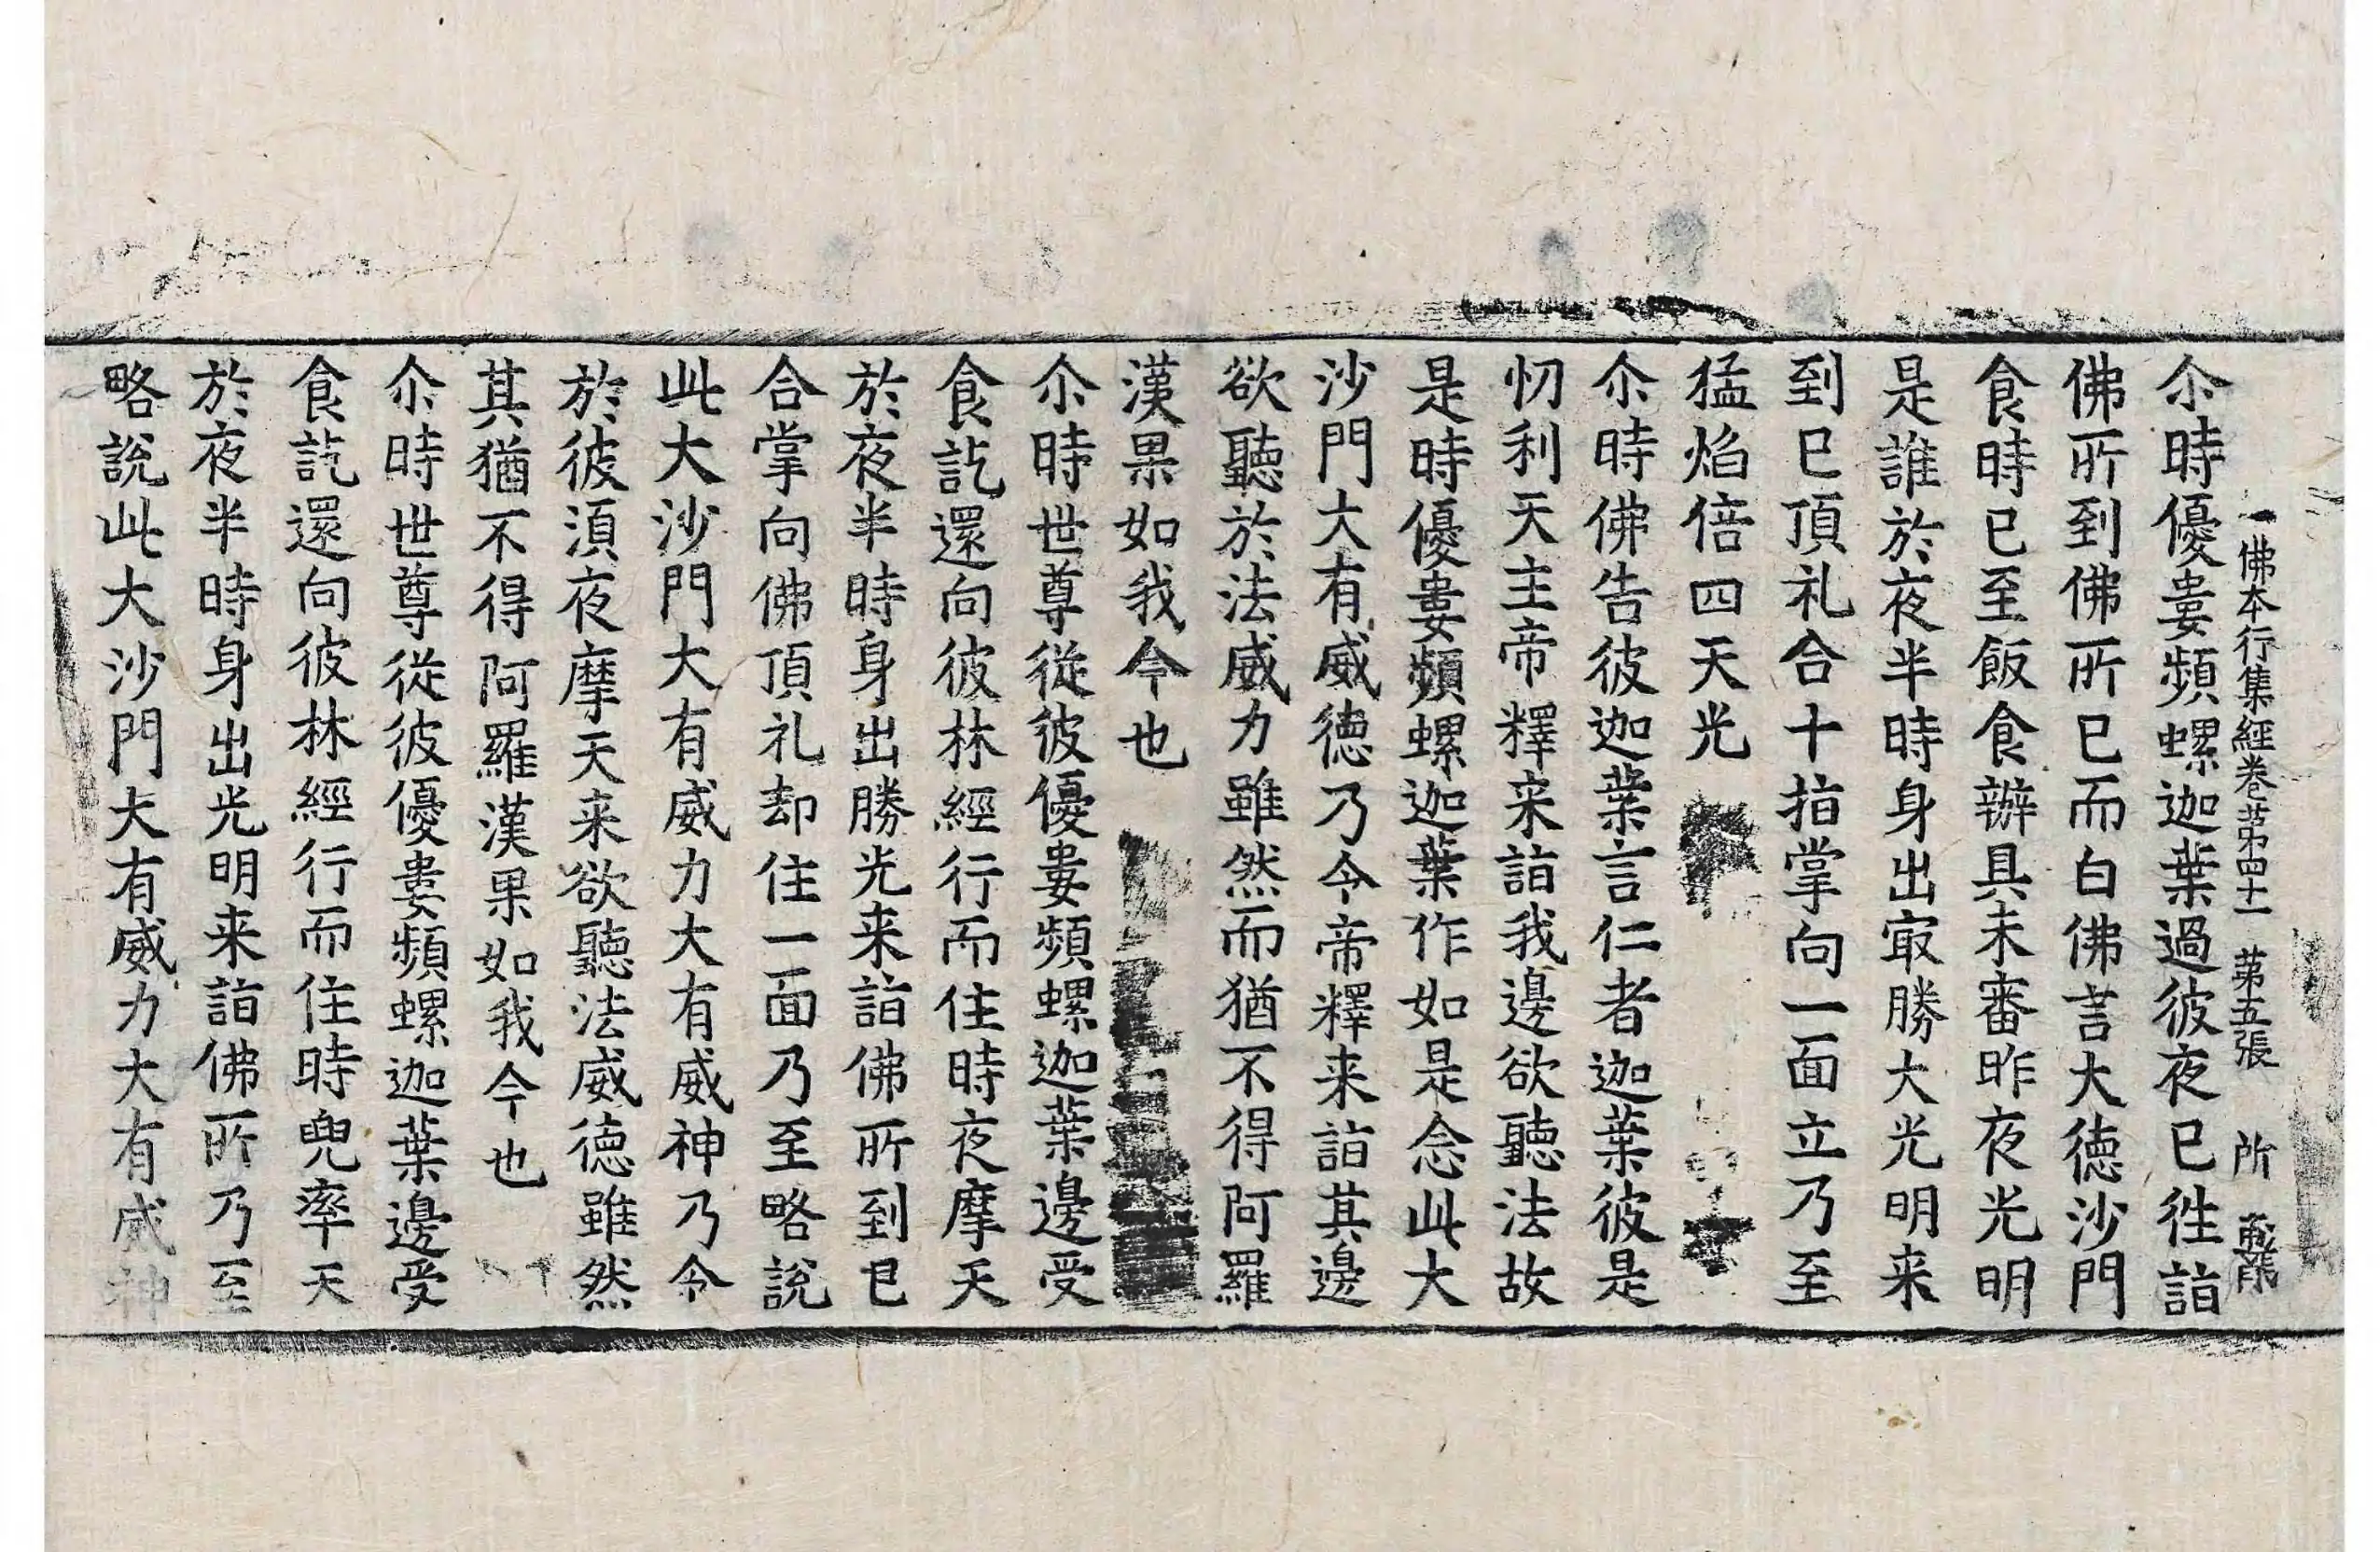 佛本行集經卷苐四十一　苐五張　所
尒時優婁頻螺迦葉過彼夜已徃詣
佛所到佛所已而白佛言大德沙門
食時已至飯食辦具未審昨夜光明
是誰於夜半時身出㝡勝大光明来
到已頂礼合十指掌向一面立乃至
猛焰倍四天光
尒時佛告彼迦葉言仁者迦葉彼是
忉利天主帝釋来詣我邊欲聽法故
是時優婁頻螺迦葉作如是念此大
沙門大有威德乃令帝釋来詣其邊
欲聽於法威力雖然而猶不得阿羅
漢果如我今也
尒時世尊從彼優婁頻螺迦葉邊受
食訖還向彼林經行而住時夜摩天
於夜半時身出勝光来詣佛所到已
合掌向佛頂礼却住一面乃至略說
此大沙門大有威力大有威神乃令
於彼湏夜摩天来欲聽法威德雖然
其猶不得阿羅漢果如我今也
尒時世尊從彼優婁頻螺迦葉邊受
食訖還向彼林經行而住時兜率天
於夜半時身出光明来詣佛所乃至
略說此大沙門大有威力大有威神